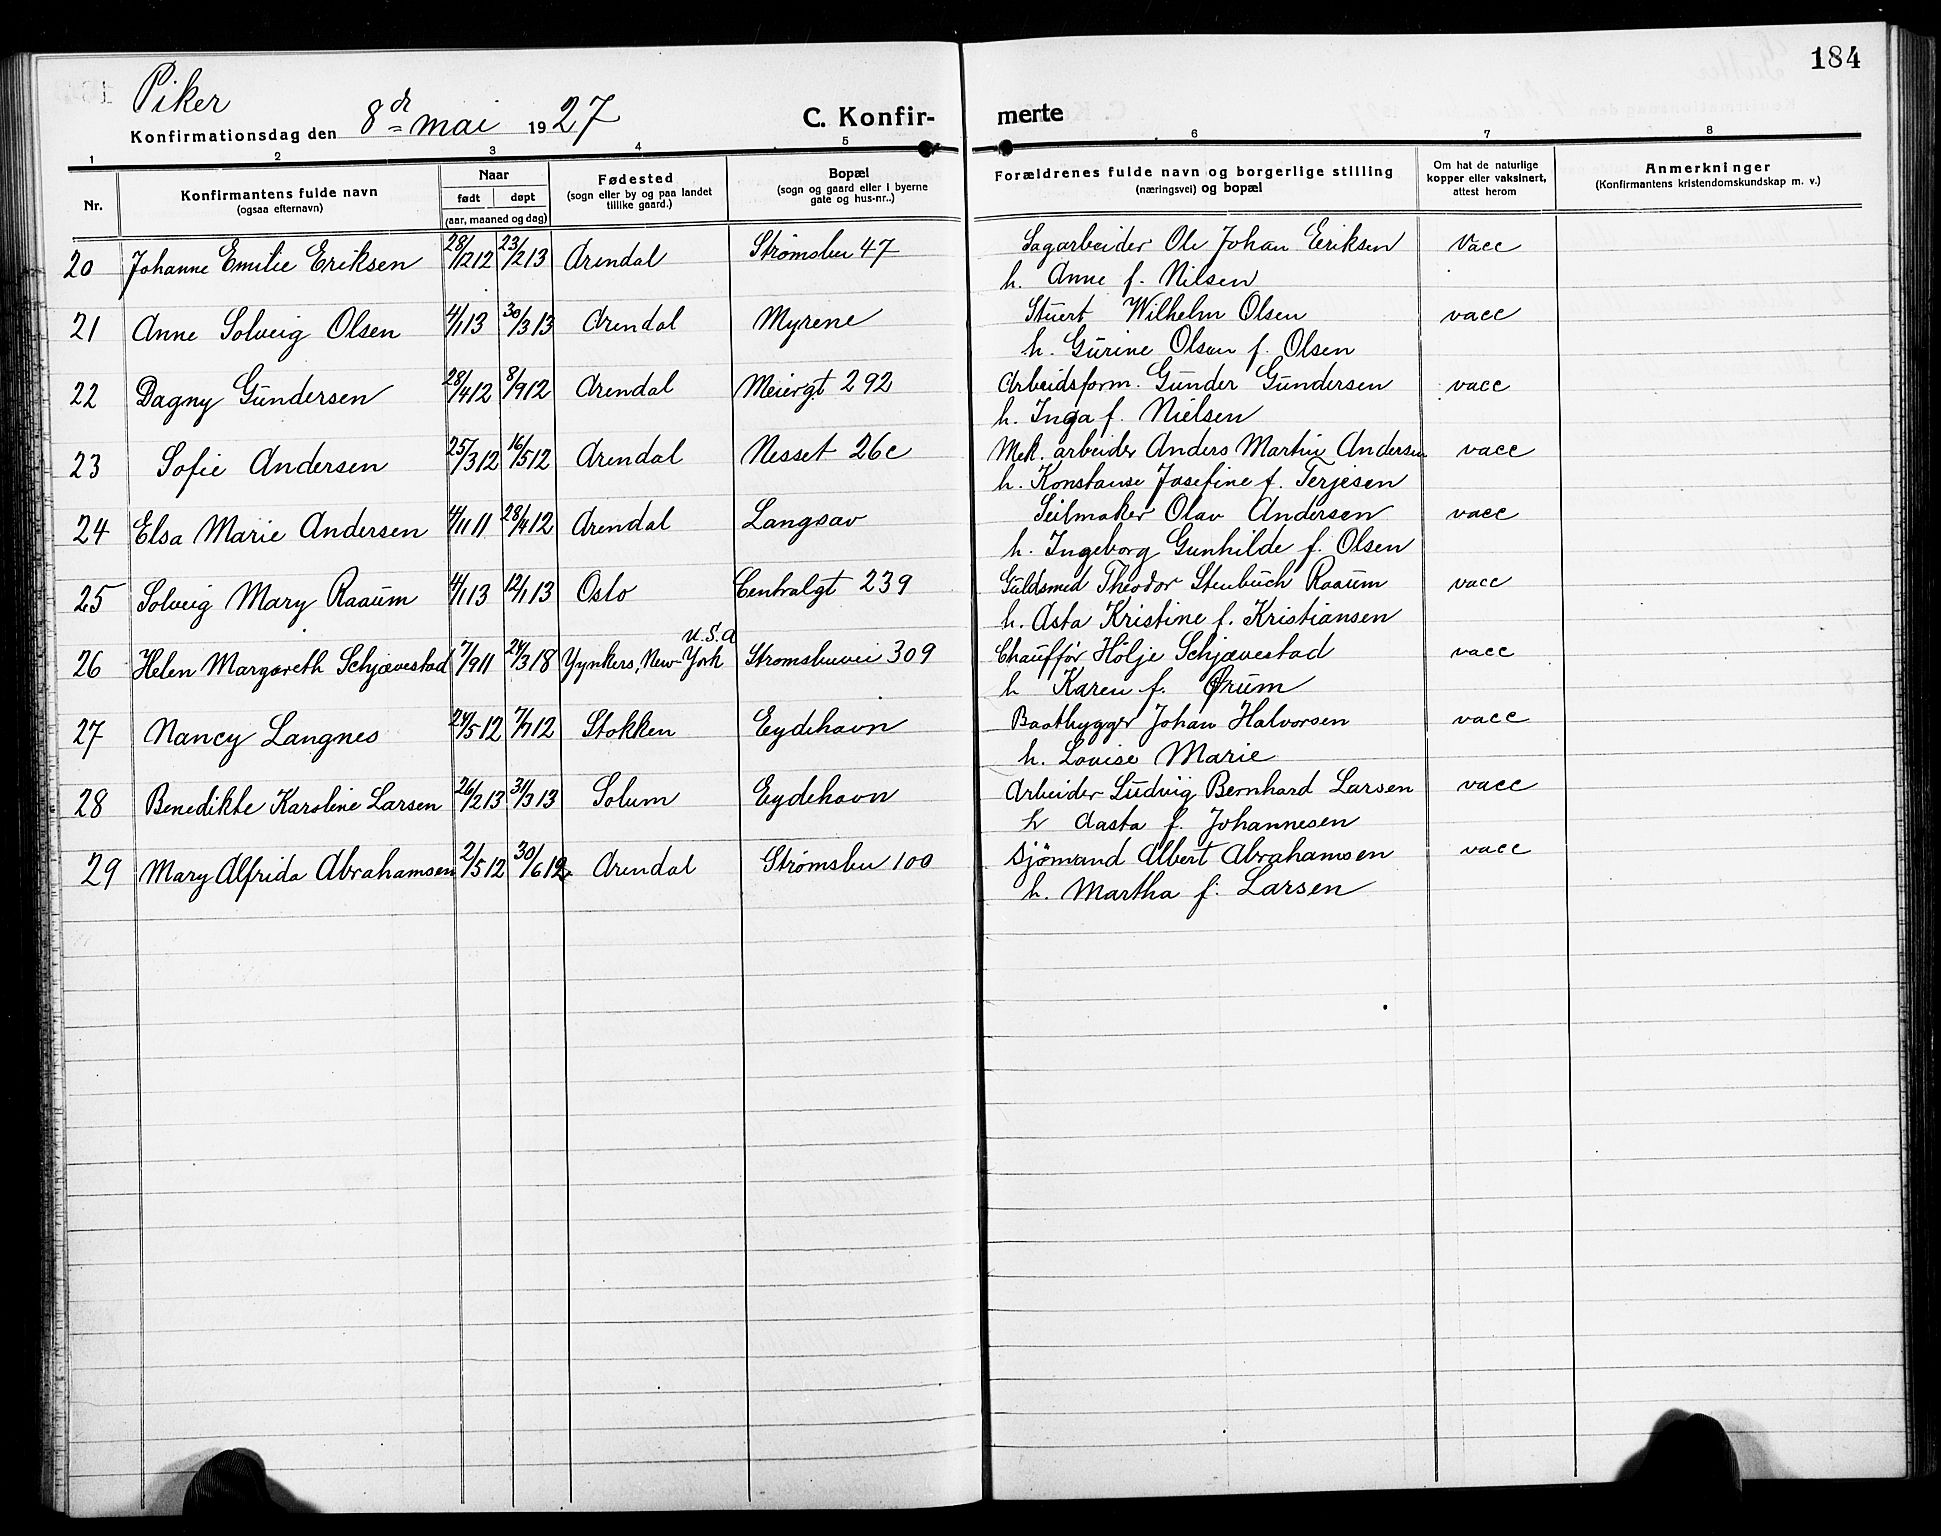 184
Piker
Konfirmationsdag den 8de mai 1927
C. Konfir-
merte
1 2 3 4 5 6 7 8
Nr.
Konfirmantens fulde navn
(ogsaa efternavn)
Naar
født døpt
(aar, maaned og dag)
Fødested
(sogn eller by og paa landet
tillike gaard.)
Bopæl
(sogn og gaard eller i byerne
gate og hus-nr..)
Forældrenes fulde navn og borgerlige stilling
(næringsvei) og bopæl
Om hat de naturlige
kopper eller vaksinert,
attest herom
Anmerkninger
(Konfirmantens kristendomskundskap m. v.)
20 Johanne Emilie Eriksen 28/12 12 23/2 13 Arendal Strømsbu 47 Sagarbeider Ole Johan Eriksen vacc
h. Anne f. Nilsen
21 Anne Solveig Olsen 4/1 13 30/3 13 Arendal Myrene Stuert Wilhelm Olsen vacc
h. Gurine Olsen f. Olsen
22 Dagny Gundersen 28/4 12 8/9 12 Arendal Meiergt 292 Arbeidsform. Gunder Gundersen vacc
h. Inga f. Nielsen
23 Sofie Andersen 25/3 12 16/5 12 Arendal Nesset 26c Mek. arbeider Anders Martin Andersen vacc
h. Konstanse Josefine f. Terjesen
24 Elsa Marie Andersen 4/11 11 28/4 12 Arendal Langsav Seilmaker Olav Andersen vacc
h. Ingeborg Gunhilde f. Olsen
25 Solveig Mary Raaum 4/1 13 12/1 13 Oslo Centralgt 239 Guldsmed Theodor Stenbuch Raaum vacc
h. Asta Kristine f. Kristiansen
U.S.A
26 Helen Margareth Schjævestad 7/9 11 24/3 18 Yynkers, New-York Strømsbuvei 309 Chauffør Hölje Schjævestad vacc
h Karen f. Ørum
27 Nancy Langnes 24/5 12 7/7 12 Stokken Eydehavn Baatbygger Johan Halvorsen vacc
h. Lovise Marie
28 Benedikte Karoline Larsen 26/2 13 31/3 13 Solum Eydehavn Arbeider Ludvig Bernhard Larsen vacc
h Aasta f. Johannesen
29 Mary Alfrida Abrahamsen 2/5 12 30/6 12 Arendal Strømsbu 100 Sjömand Albert Abrahamsen vacc
h. Martha f. Larsen